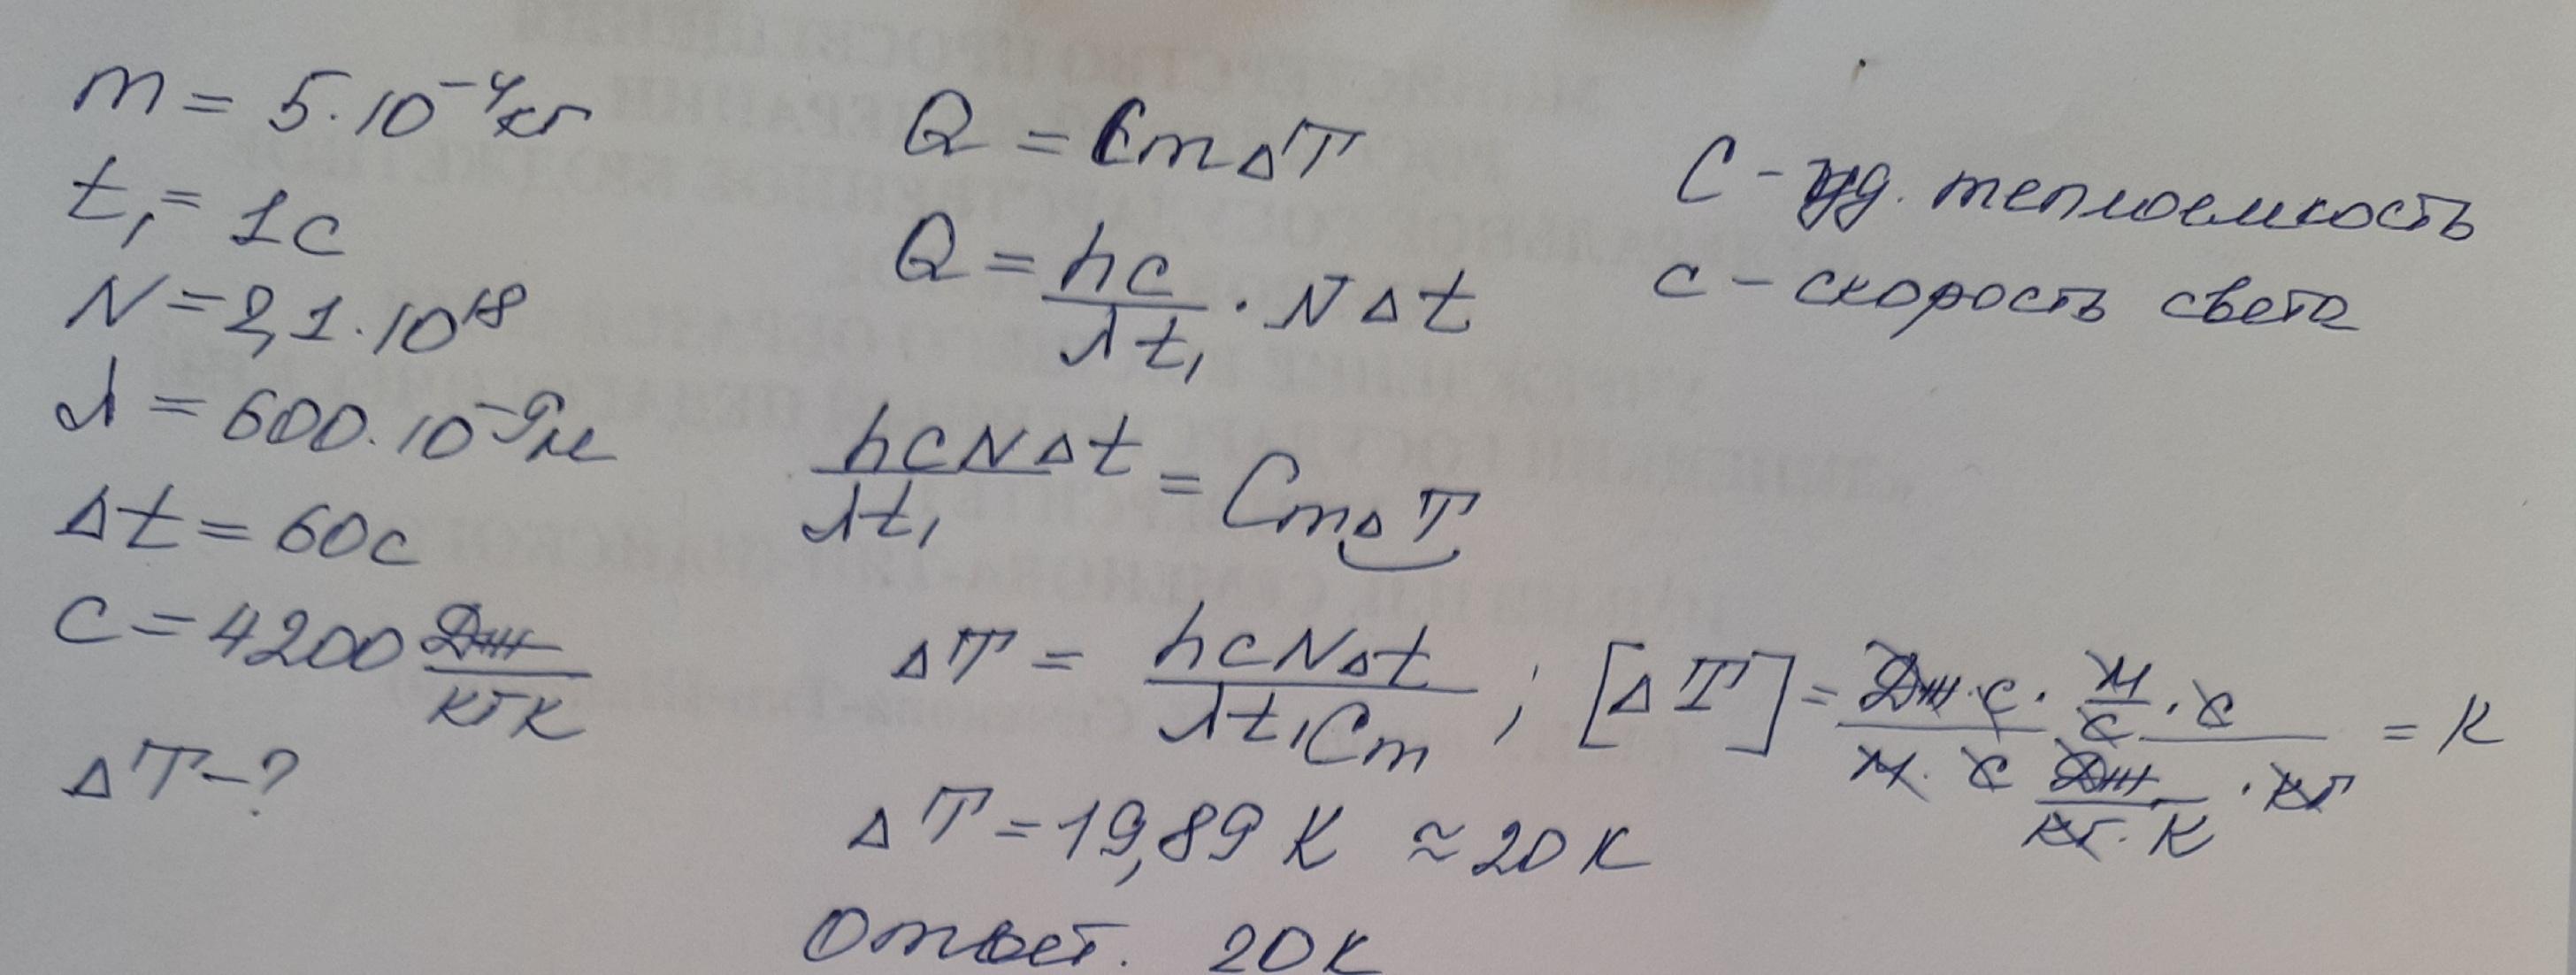 m = 5·10⁻⁴кг
t₁ = 1с
N = 2,1·10¹⁸
λ = 600·10⁻⁹м
Δt = 60с
C = 4200 Дж/кгК
ΔT – ?
Q = CmΔT
Q = hc/λt₁ · NΔt
hcNΔt/λt₁ = CmΔT
ΔT = hcNΔt/λt₁Cm ; [ΔT] = Дж·с· м/с ·с / м·с Дж/кг·К ·кг = К
ΔT = 19,89 К ≈ 20 К
Ответ. 20К
C – уд. теплоемкость
c – скорость света